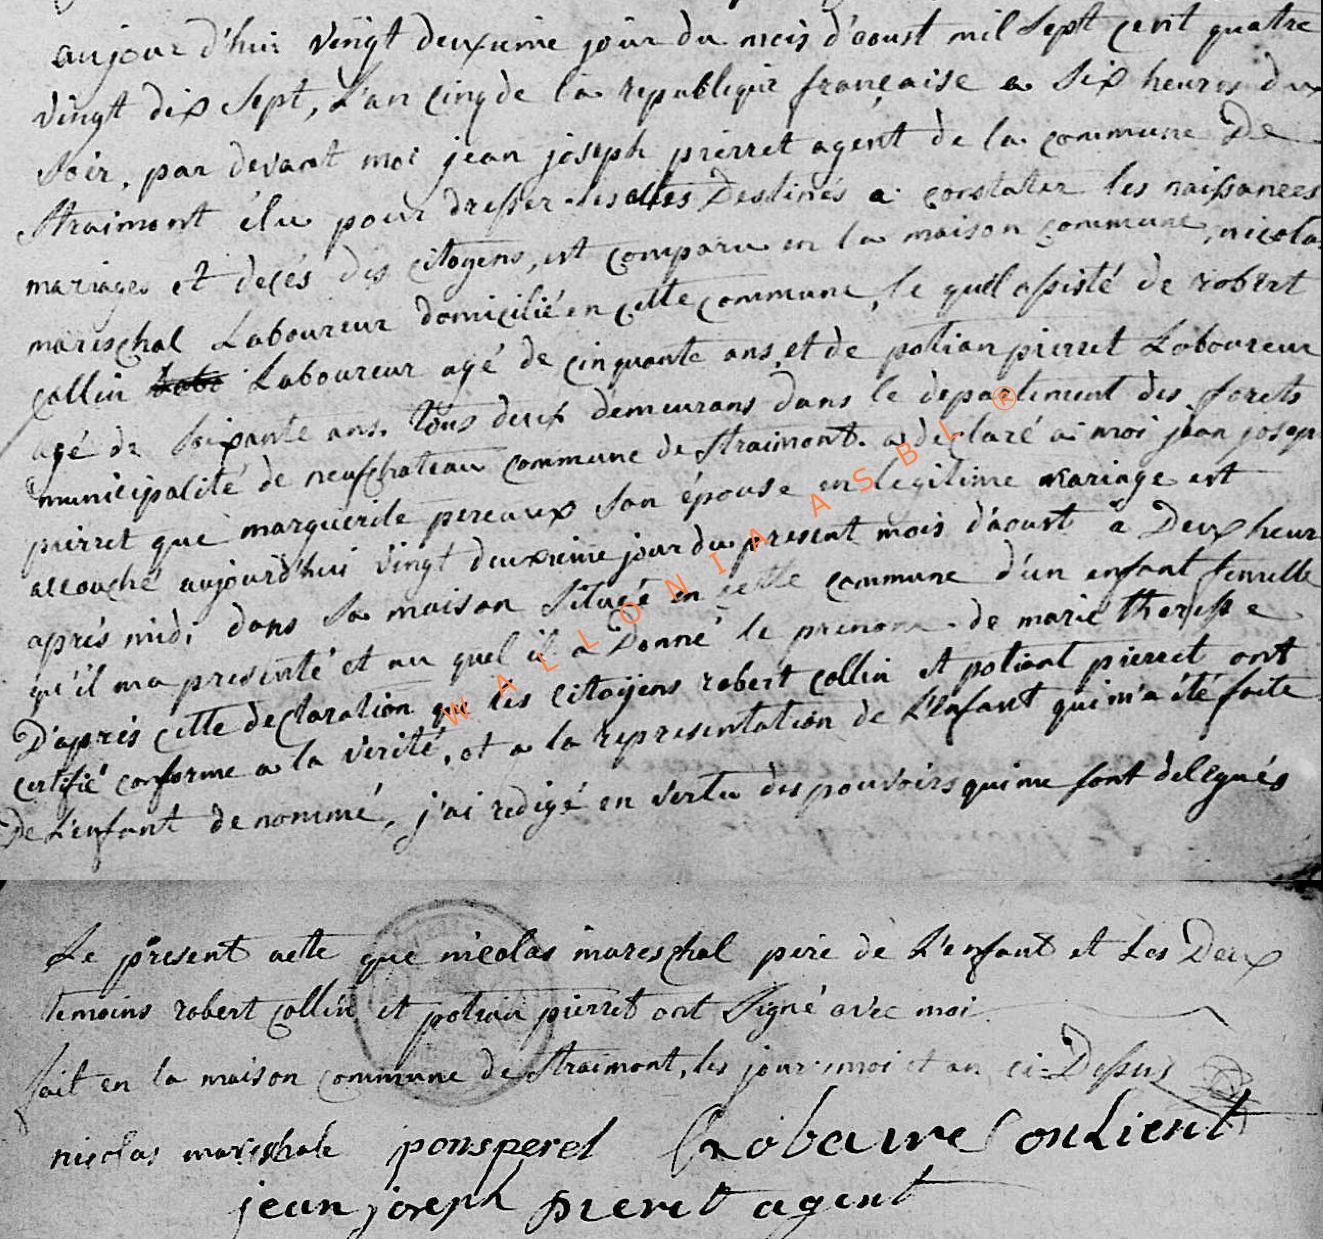 aujour d'hui vingt deuxieme jour du mois d'aoust mil sept cent quatre
vingt dix sept, L'an cinq de la republique française a six heures du
soir, par devant moi jean joseph pierret agent de la commune De
straimont élu pour dresser les actes Destinés a constater les naissances
mariages et decés des citoyens, est comparu en la maison commune, nicola
mareschal Laboureur domicilié en cette commune, le quel assisté de robert
collin Laboureur agé de cinquante ans, et de potian pierret Laboureur
agé de soixante ans. tous deux demeurans dans le departement des forets
municipalité de neufchateau commune de straimont. a declaré a moi jean josep
pierret que marguerite pereaux son épouse en legitime mariage est
accouché aujourd'hui vingt deuxieme jour du present mois d'aoust a Deux heur
aprés midi dans sa maison située en cette commune d'un enfant femelle
qu'il ma presenté et au quel il a Donné le prenom de marie theresse
D'aprés cette declaration que les citoÿens robert collin et potiant pierret ont
certifié conforme a la verité, et a la representation de L'enfant qui m'a été faite
De L'enfant denommé, j'ai redigé en vertu des pouvoirs qui me sont delegués
Le présent acte que nicolas mareschal pere de L'enfant et Les Deux
temoins robert collin et potian pierret ont signé avec moi
fait en la maison commune de straimont, les jour moi et an ci-Dessus
nicolas mareschale ponsperel
jean joseph pieret agent
WALLONIA ASBL ®